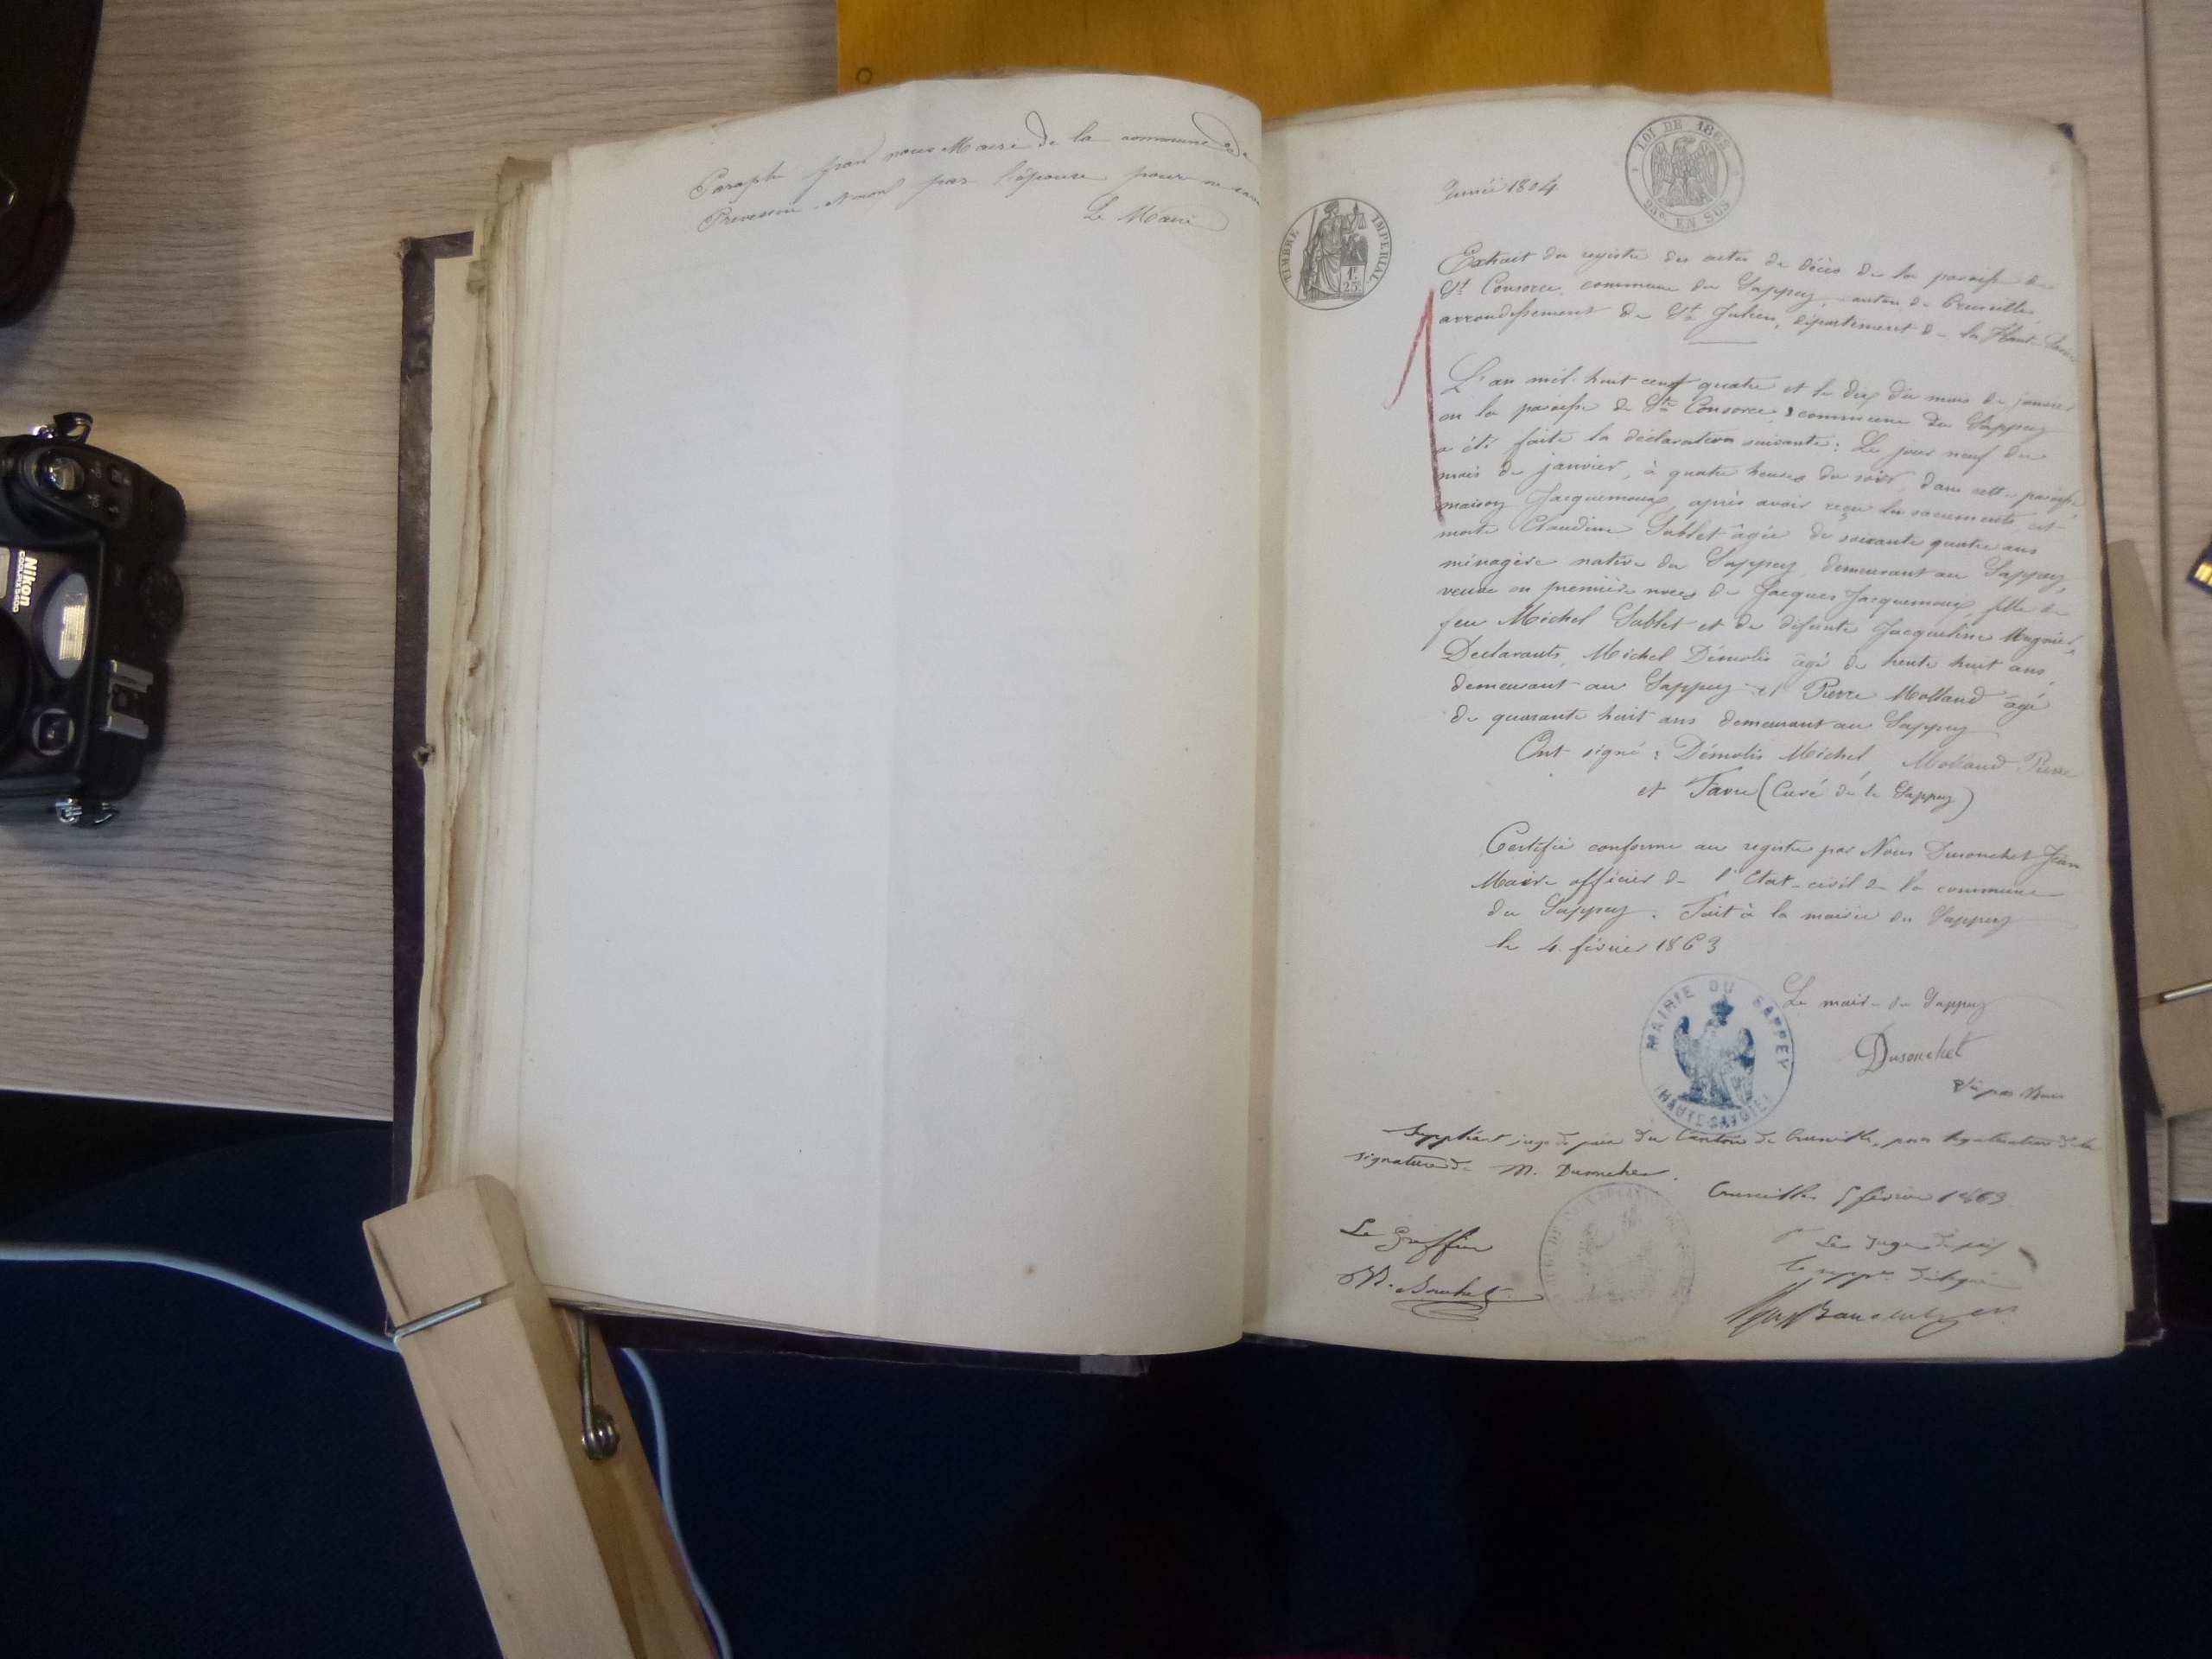 Paraphé par nous Maire de la commune de
Prevessin par l'épouse pour ne
Le Maire
LOI DE 1862
25c EN SUS
TIMBRE IMPERIAL
1F
25C
Année 1804
Extrait du registre des actes de décès de la paroisse de
Ste Consorce, commune du Sappey, canton de Cruseilles
arrondissement de St Julien, département de la Haute Savoie
L'an mil huit cent quatre et le dix du mois de janvier
en la paroisse de Ste Consorce, commune du Sappey
a été faite la déclaration suivante: Le jour neuf du
mois de janvier, à quatre heures du soir, dans cette paroisse,
maison Jacquemoux, après avoir reçu les sacuments est
morte Claudine Sublet âgée de soixante quatre ans
ménagère native du Sappey, demeurant au Sappey,
veuve en première noces de Jacques Jacquemoux, fille de
feu Michel Sublet et de défunte Jacqueline Mugnier,
Déclarants, Michel Démolis âgé de trente huit ans,
demeurant au Sappey et Pierre Molland âgé
de quarante huit ans demeurant au Sappey
Ont signé: Démolis Michel Molland Pierre
et Favre (Curé de le Sappey)
Certifié conforme au registre par Nous Dusonchet Jean
Maire officier de l'Etat-civil de la commune
du Sappey. Fait à la mairie du Sappey
le 4 février 1863
Le maire du Sappey
MAIRIE DU SAPPEY
(HAUTE-SAVOIE)
Dusonchet
Vu par Nous
Suppléant juge de paix du Canton de Cruseilles, pour légalisation de la
signature de M. Dusonchet.
Cruseilles 5 février 1863
Le Greffier
Le Juge de paix
Le supp. délégué